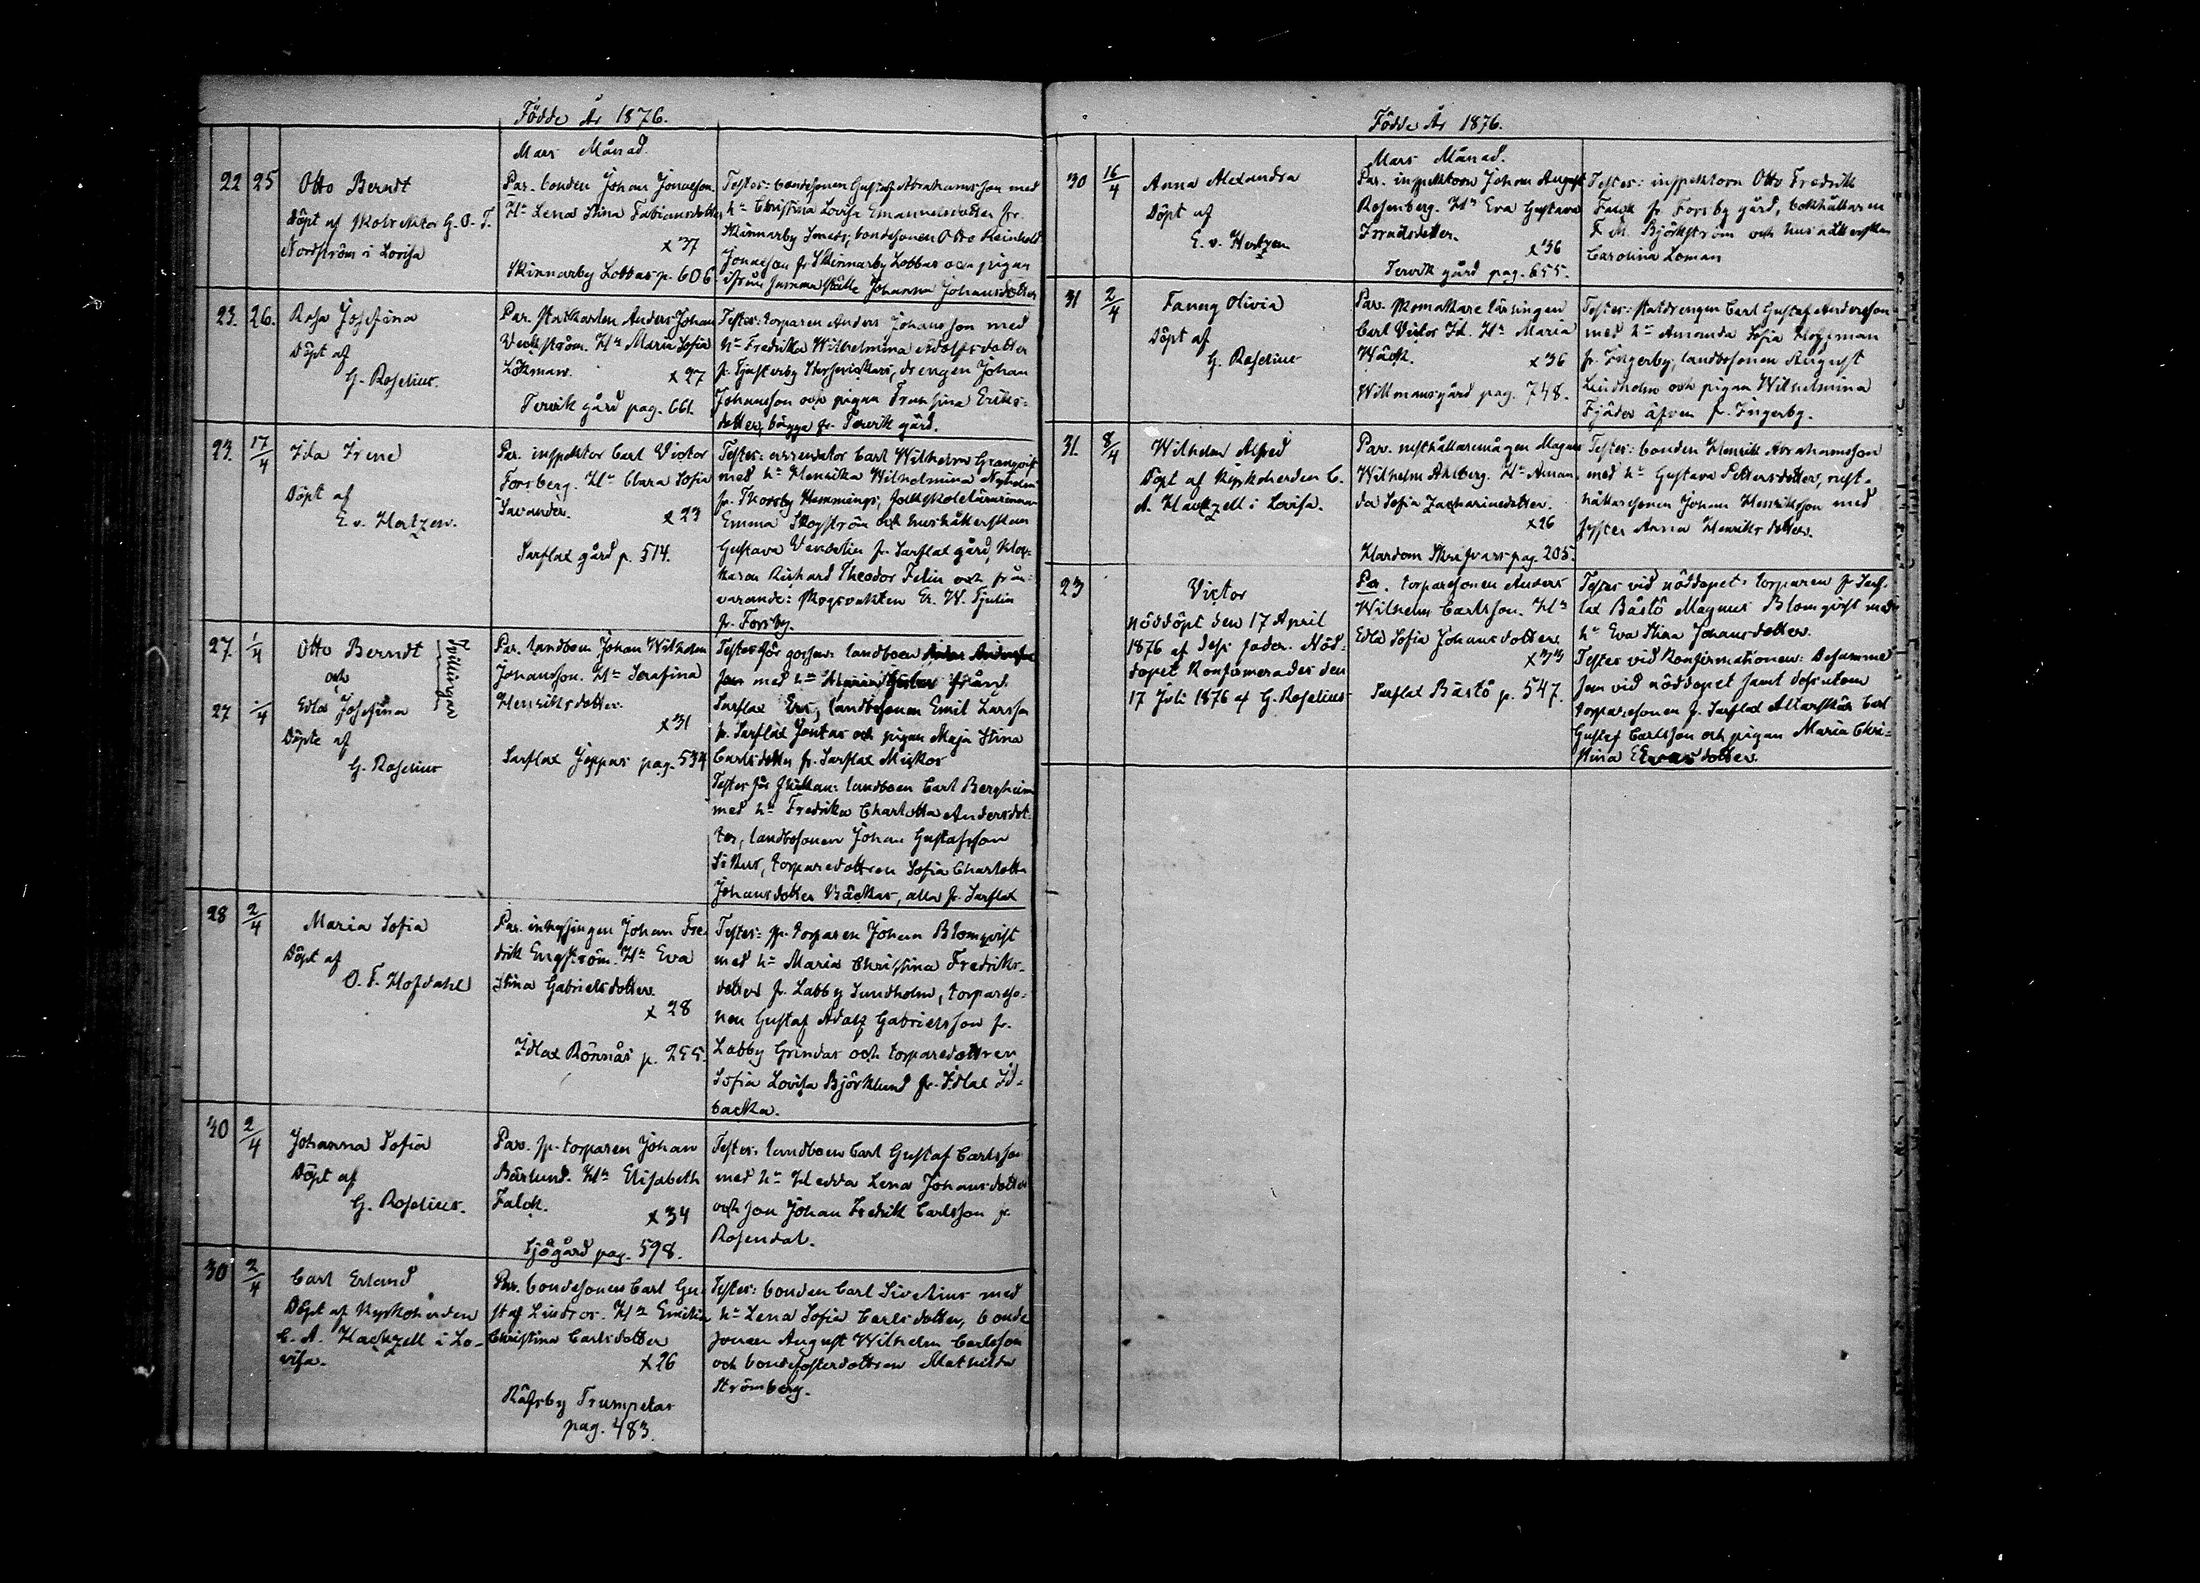 Födde År 1876.
Mars Månad.
22 25 Otto Berndt
Döpt af Kolrektor G. O. T.
Nordström i Lovisa
Par. bonden Johan Jonaeson.
Hu Lena Stina Fabiansdotter
x 37
Skinnarby Lobbas p. 606
Testes: bondesonen Gustaf Abrahamsson med
hu Christina Lovisa Emanuelsdotter fr.
Skinnarby Smeds, bondesonen Otto Reinhold
Jonaeson fr Skinnarby Lobbas och pigan
ifrån samma ställe Johanna Johansdotter
23. 26. Rosa Josefina
Döpt af
G. Roselius.
Par. statkarlen Anders Johan
Veckström. Hu Maria Sofia
Lökman.
x 27
Tervik gård pag. 661.
Testes: torparen Anders Johansson med
hu Fredrika Wilhelmina Adolfsdotter
fr. Tjusterby, drengen Johan
Johansson och pigan Fransina Eriks-
dotter, bägge fr. Tervik gård.
23. 17/4 Ida Irene
Döpt af
E. v. Hertzen.
Par. inspektor Carl Victor
Forsberg. Hu Clara Sofia
Savander.
x 23
Sarflax gård p. 514.
Testes: arrendator Carl Wilhelm Granqvist
med hu Henrika Wilhelmina Nyholm
fr. Thorsby Hemmings, folkskolelärarinnan
Emma Skogström och hushållerskan
Gustava Vendelin fr. Sarflax gård, kloc-
karen Richard Theodor Felin och från-
varande: skogsvakten Er. W. Tjulin
fr. Forsby.
27. 1/4 Otto Berndt
och
27 1/4 Edla Josefina
Tvillingar
Döpte af
G. Roselius
Par. landboen Johan Wilhelm
Johansson. Hu Serafina
Henriksdotter.
x 31
Sarflax Jeppas pag. 534
Testes för gossen: landboen
med hu från
Sarflax Ers, landbosonen Emil Larsson
fr. Sarflax Jontas och pigan Maja Stina
Carlsdotter fr. Sarflax Mickos
Testes för flickan: landboen Carl Bergheim
med hu Fredrika Charlotta Andersdot-
ter, landbosonen Johan Gustafsson
Sikus, torparedottren Sofia Charlotta
Johansdotter Bäckas, alla fr. Sarflax
28 2/4 Maria Sofia
Döpt af
O. F. Hofdahl
Par. inhysingen Johan Fre-
drik Engström. Hu Eva
Stina Gabrielsdotter.
x 28
Idlax Rönnäs p. 255.
Testes: sp. torparen Johan Blomqvist
med hu Maria Christina Fredriks-
dotter fr. Labby Sundholm, torpareso-
nen Gustaf Adolf Gabrielsson fr.
Labby Grindas och torparedottren
Sofia Lovisa Björklund fr. Idlax Id-
backa.
30 2/4 Johanna Sofia
Döpt af
G. Roselius.
Par. sp. torparen Johan
Bärlund. Hu Elisabeth
Falck.
x 34
Sjögård pag. 598.
Testes: landboen Carl Gustaf Carlsson
med hu Hedda Lena Johansdotter
och son Johan Fredrik Carlsson fr.
Rosendal.
30 2/4 Carl Erland
Döpt af Kyrkoherden
C. A. Hackzell i Lo-
visa.
Par. bondesonen Carl Gu-
staf Lindros. Hu Emilia
Christina Carlsdotter
x 26
Räfsby Trumpetas
pag. 483.
Testes: bonden Carl Sivenius med
hu Lena Sofia Carlsdotter, bonde
sonen August Wilhelm Carlsson
och bondefosterdottren Mathilda
Strömberg.
Födde År 1876.
Mars Månad.
30 16/4 Anna Alexandra
Döpt af
E. v. Hertzen
Par. inspektorn Johan August
Rosenberg. Hu Eva Gustava
Israelsdotter.
x 36
Tervik gård pag. 655.
Testes: inspektorn Otto Fredrik
Falck fr. Forsby gård, bokhållaren
F. M. Björkström och hushållerskan
Carolina Loman
31 2/4 Fanny Olivia
Döpt af
G. Roselius
Par. skomakare lärlingen
Carl Victor Id. Hu Maria
Wäck.
x 36
Willmansgård pag. 748.
Testes: statdrengen Carl Gustaf Andersson
med hu Amanda Sofia
fr. Ingerby, landbosonen August
Lindholm och pigan Wilhelmina
Fjäder äfven fr. Ingerby.
31. 8/4 Wilhelm Alfred
Döpt af Kyrkoherden C.
A. Hackzell i Lovisa.
Par. rusthållaremågen Magnus
Wilhelm Ahlberg. Hu Aman-
da Sofia Zachariaedotter.
x 26
Hardom Skrefvars pag. 205.
Testes: bonden Henrik Abrahamsson
med hu Gustava Pettersdotter, rust-
hållaresonen Johan Henriksson med
syster Anna Henriksdotter.
23 Victor
nöddöpt den 17 April
1876 af dess fader. Nöd-
dopet konfirmerades den
17 Juli 1876 af G. Roselius
Par. torparesonen Anders
Wilhelm Carlsson. Hu
Edla Sofia Johansdotter
x 33
Sarflax Båstö p. 547.
Testes vid nöddopet: torparen fr Sarf-
lax Båstö Magnus Blomqvist med
hu Eva Stina Johansdotter.
Testes vid konfirmationen: Desamma
som vid nöddopet samt dessutom
torparesonen fr. Sarflax Allarskär Carl
Gustaf Carlsson och pigan Maria Chri-
stina